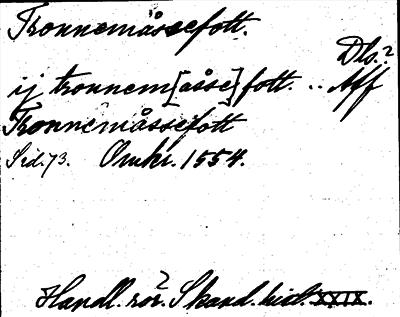 Tronnemåssefott.
Dls.?
ij tronnem[åsse]fott. .. Aff
Tronnemåssefott
Sid. 73. Omkr. 1554.
Handl. rör. Skand. hist. XXIX.